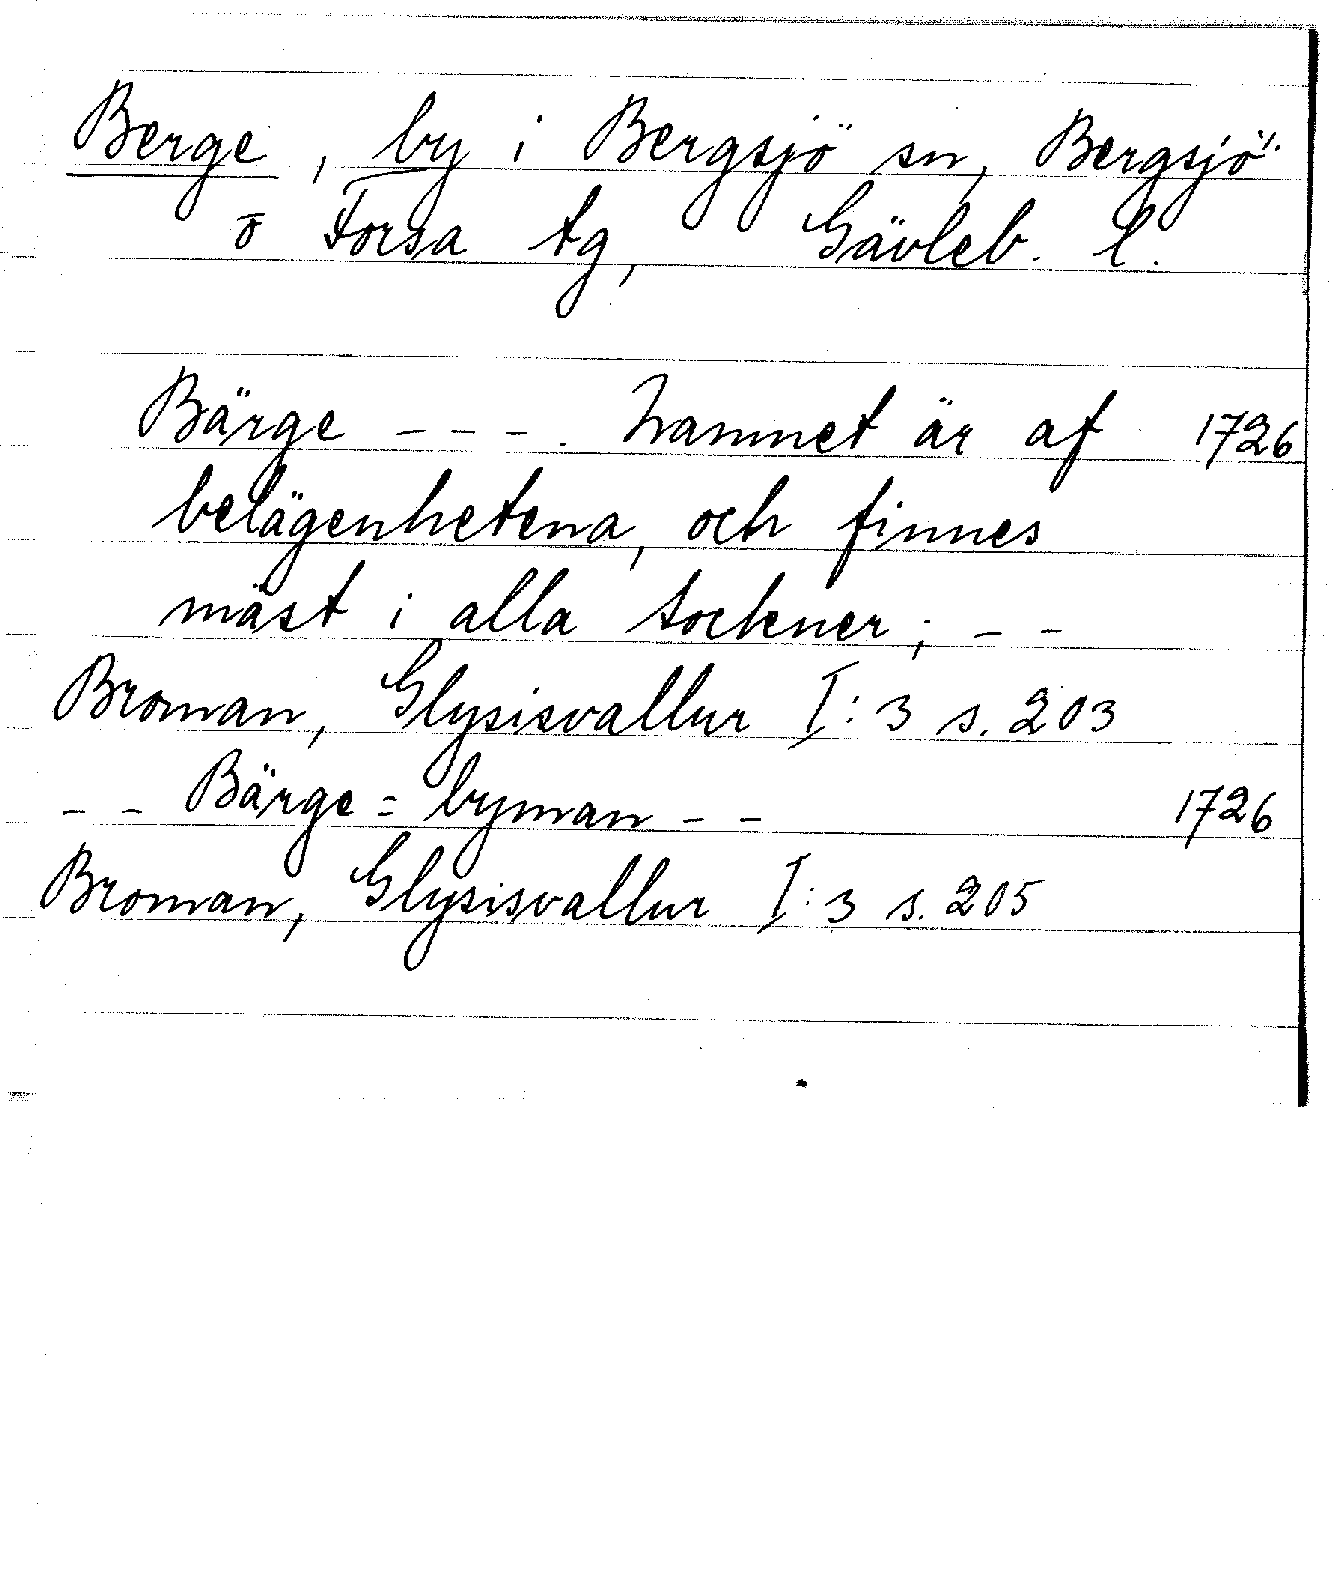 Berge, by i Bergsjö sn, Bergsjö
o Forsa tg, Gävleb. l.
Bärge - - - . Namnet är af 1726
belägenhetena, och finnes
mäst i alla sockener; - -
Broman, Glysisvallur I:3 s. 203
- - Bärge = byman - - 1726
Broman, Glysisvallur I:3 s. 205